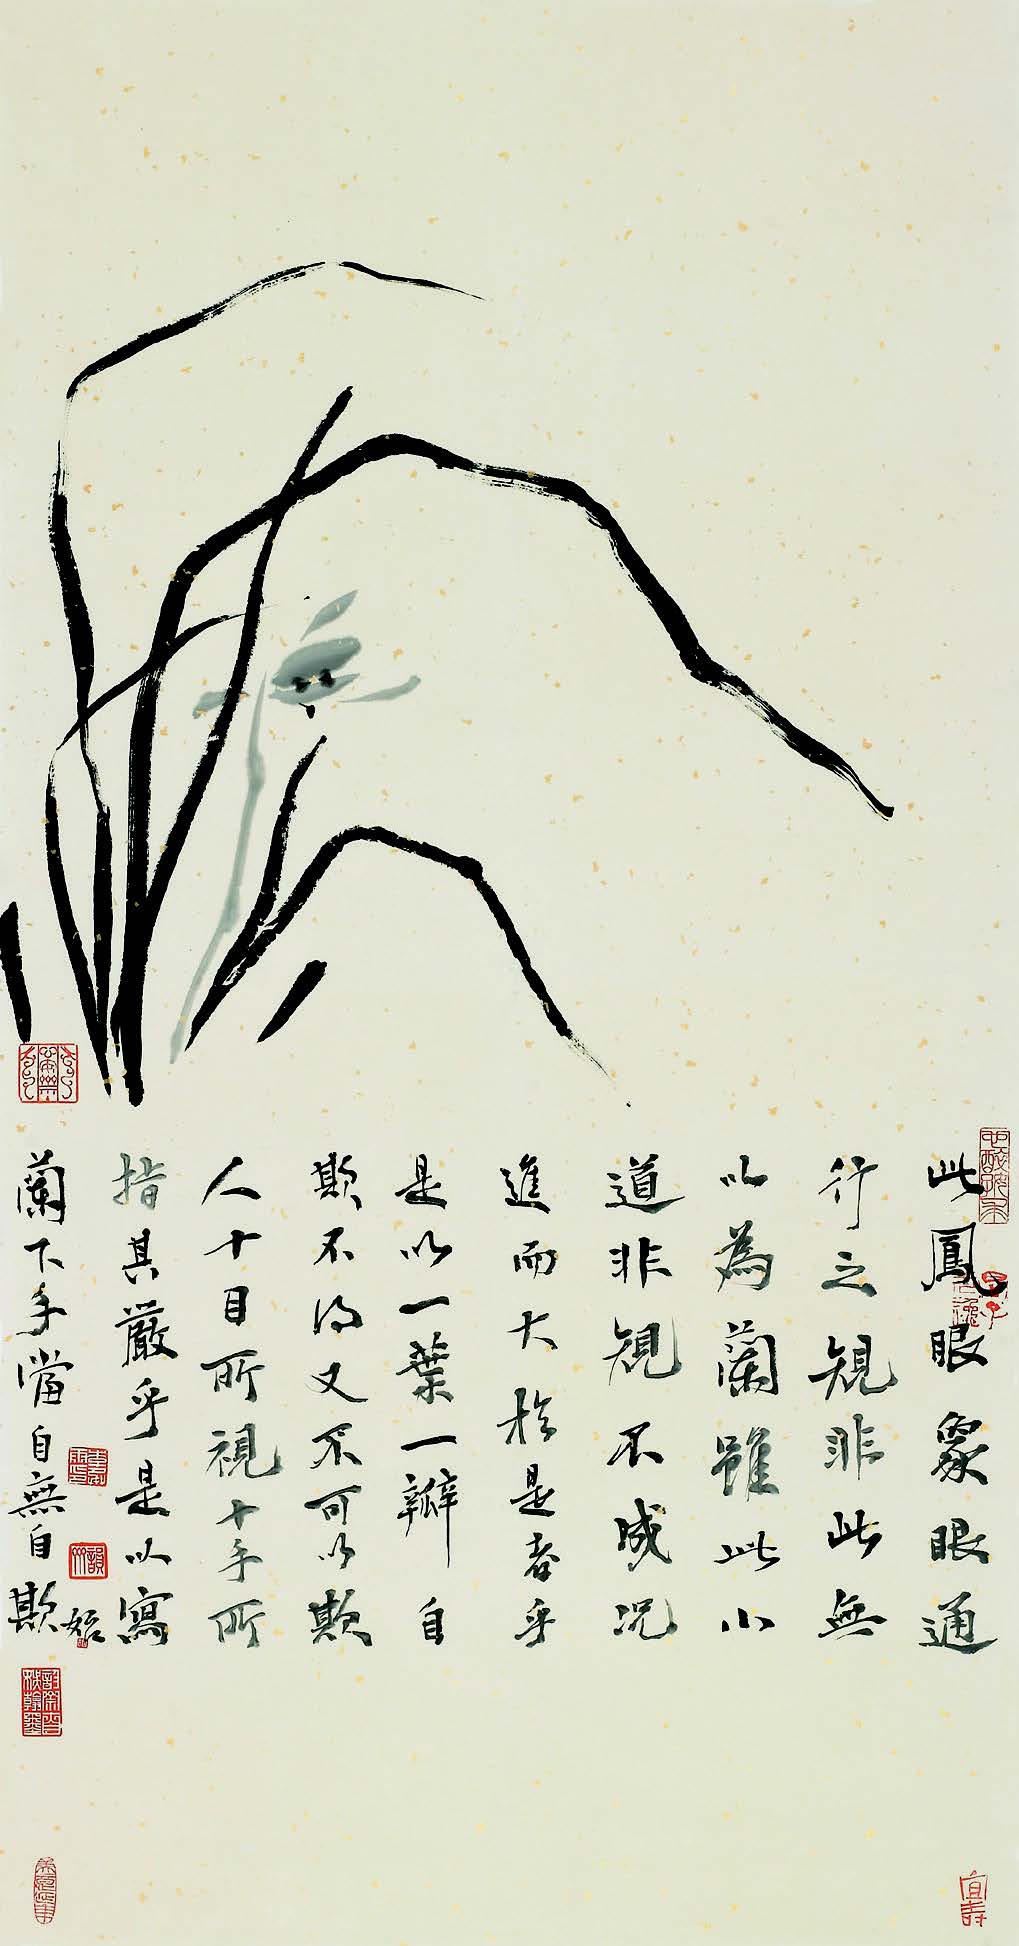 此鳳眼象眼通
行之規非此無
以為蘭雖此小
道非規不成況
進而大於是者乎
是以一葉一瓣自
欺不得又不可以欺
人十目所視十手所
指其嚴乎是以寫
蘭下手當自無自欺
始
宜壽